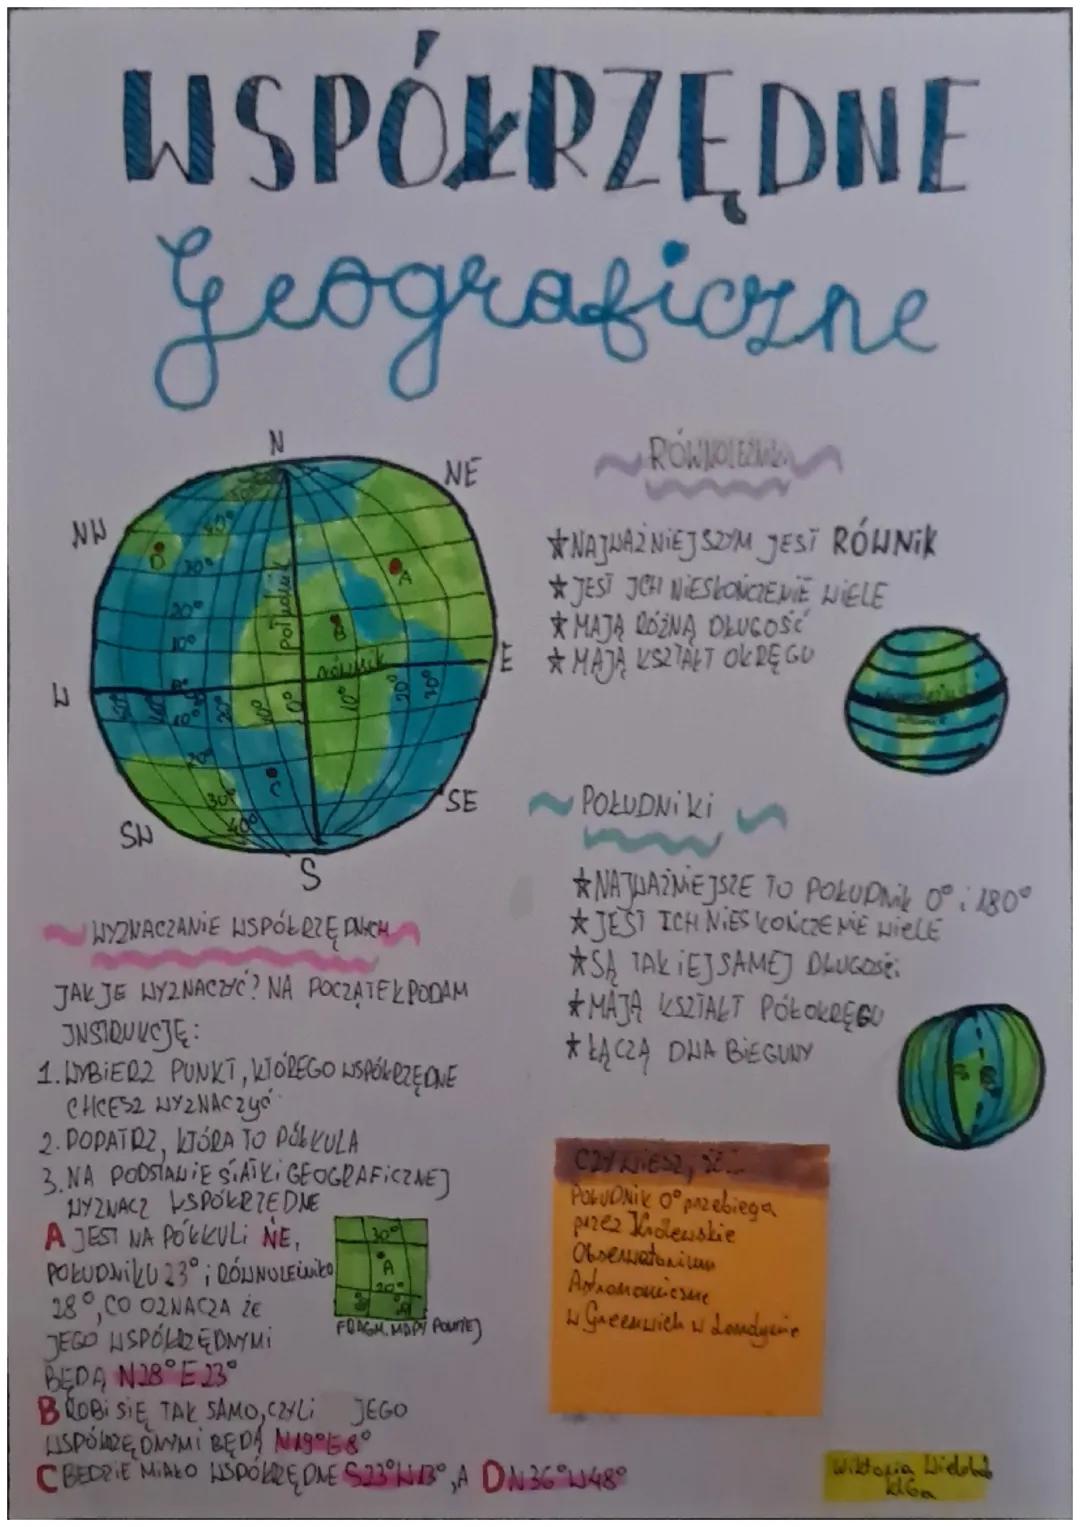 WSPÓŁRZĘDNE
Geograficzne
N
NE
NW
E
W
SE
SW
S
40°
30°
20°
10°
0°
10°
20°
30°
40°
20°
10°
0°
10°
20°
30°
południk
równik
A
B
C
D
RÓWNOLEŻNIKI
★ NAJWAŻNIEJSZYM JEST RÓWNIK
★ JEST ICH NIESKOŃCZENIE WIELE
★ MAJĄ RÓŻNĄ DŁUGOŚĆ
★ MAJĄ KSZTAŁT OKRĘGU
POŁUDNIKI
★ NAJWAŻNIEJSZE TO POŁUDNIK 0° i 180°
★ JEST ICH NIESKOŃCZENIE WIELE
★ SĄ TAKIEJ SAMEJ DŁUGOŚCI
★ MAJĄ KSZTAŁT PÓŁOKRĘGU
★ ŁĄCZĄ DWA BIEGUNY
WYZNACZANIE WSPÓŁRZĘDNYCH
JAK JE WYZNACZYĆ? NA POCZĄTEK PODAM
INSTRUKCJĘ:
1. WYBIERZ PUNKT, KTÓREGO WSPÓŁRZĘDNE
CHCESZ WYZNACZYĆ
2. POPATRZ, KTÓRA TO PÓŁKULA
3. NA PODSTAWIE SIATKI GEOGRAFICZNEJ
WYZNACZ WSPÓŁRZĘDNE
A JEST NA PÓŁKULI NE,
POŁUDNIKU 23° i RÓWNOLEŻNIKU
28°, CO OZNACZA ŻE
JEGO WSPÓŁRZĘDNYMI
BĘDĄ N28° E23°
30°
A
20°
FRAGM. MAPY POWYŻEJ
B ROBI SIĘ TAK SAMO, CZYLI JEGO
WSPÓŁRZĘDNYMI BĘDĄ N19°E8°
C BĘDZIE MIAŁO WSPÓŁRZĘDNE S23°W13°, A D N36°W48°
CZY WIESZ, ŻE...
POŁUDNIK 0° przebiega
przez Królewskie
Obserwatorium
Astronomiczne
w Greenwich w Londynie
Wiktoria
kl6a